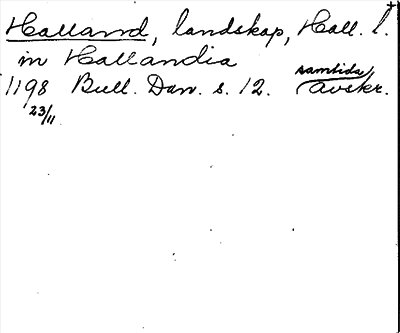 Halland, landskap, Hall. l.
in Hallandia
1198 Bull. Dan. s. 12. samtida avskr.
23/11